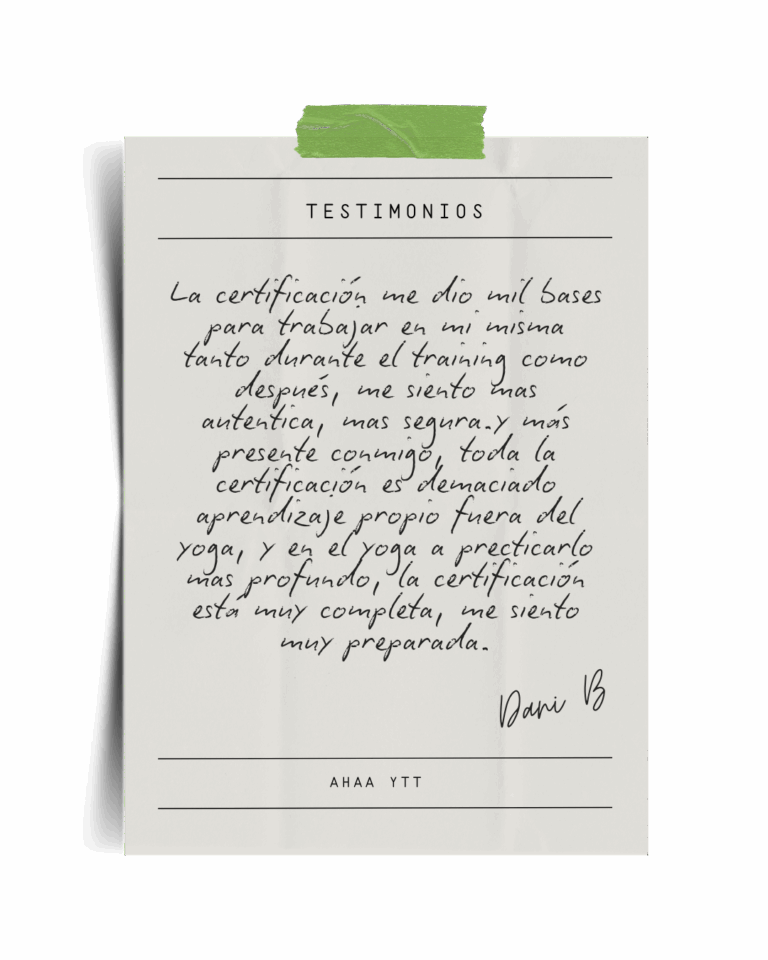 TESTIMONIOS
La certificación me dio mil bases
para trabajar en mi misma
tanto durante el training como
después, me siento mas
autentica, mas segura.y más
presente conmigo, toda la
certificación es demaciado
aprendizaje propio fuera del
yoga, y en el yoga a precticarlo
mas profundo, la certificación
está muy completa, me siento
muy preparada.
Dani B
AHAA YTT